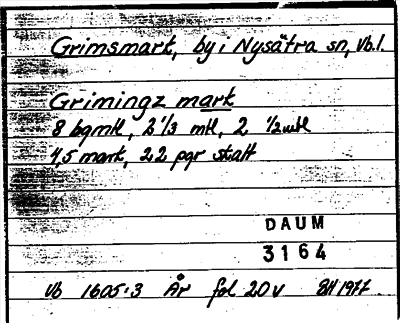 Grimsmark, by i Nysätra sn, Vb.l.
Grimingz mark
8 bgmtl, 2 1/3 mtl, 2 1/2 mtl
4,5 mark, 22 pgr skatt
DAUM
3164
Vb 1605:3 År fol 20v SH 1977